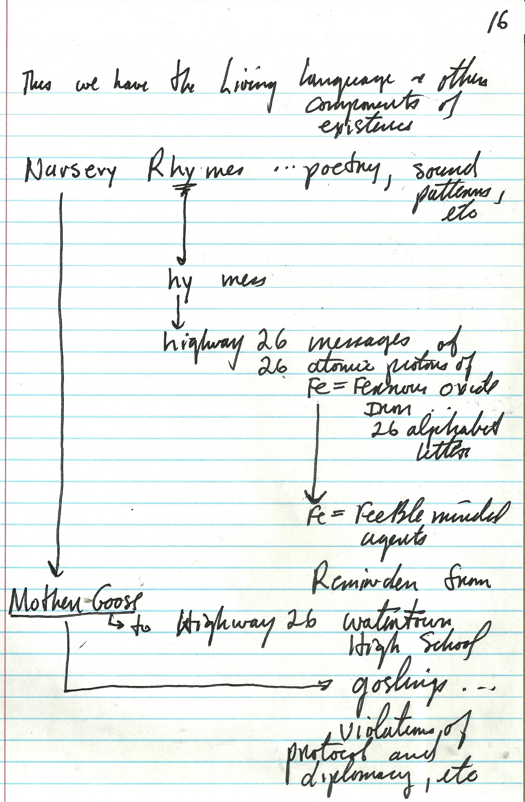 16
Thus we have the Living Language & other
components of
existence
Nursery Rhymes ... poetry, sound
patterns,
etc
hy mess
highway 26 messages of
26 atomic protons of
Fe = Ferrous oxide
Iron
26 alphabet
letters
Fe = FeeBle minded
agents
Reminder from
Mother Goose
to Highway 26 Watertown
High School
goslings ...
violations of
protocol and
diplomacy, etc